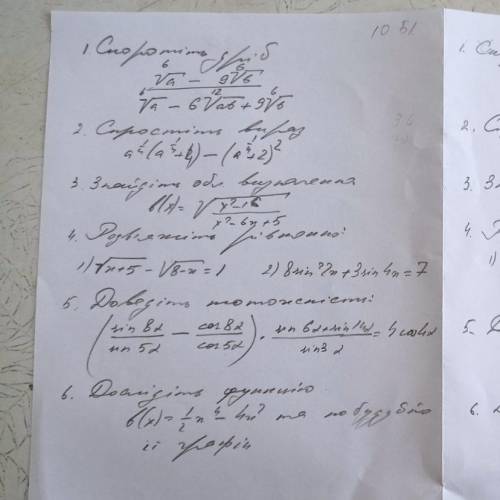 10 б1.
1. Скоротіть дріб
\frac{\sqrt[6]{a} - 9\sqrt[6]{b}}{\sqrt[6]{a} - 6\sqrt[12]{ab} + 9\sqrt[6]{b}}
2. Спростіть вираз
a^{\frac{1}{4}}(a^{\frac{1}{4}}+4) - (a^{\frac{1}{4}}+2)^2
3. Знайдіть обл визначення
f(x) = \sqrt{\frac{x^2-16}{x^2-6x+5}}
4. Розв'яжіть рівняння:
1) \sqrt{x+5} - \sqrt{8-x} = 1 2) 8sin²2x + 3sin4x = 7
5. Доведіть тотожність:
(\frac{sin8α}{sin5α} - \frac{cos8α}{cos5α}) · \frac{sin6α+sin14α}{sin3α} = 4cos4α
6. Дослідіть функцію
f(x) = \frac{1}{2}x^4 - 4x² та побудуйте
її графік
1. Ск
2. С
3. З
4. Р
1)
5.
6.